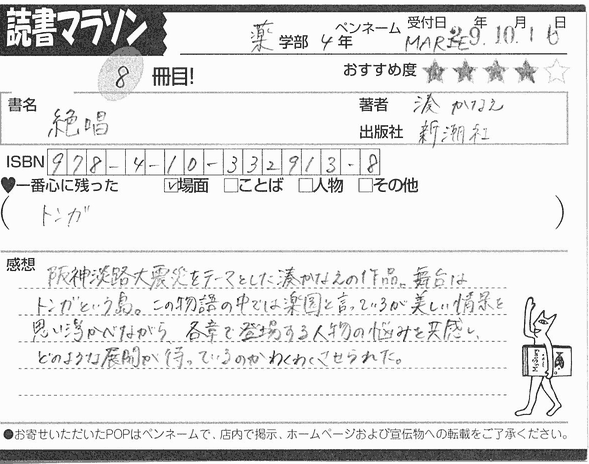 読書マラソン
薬 学部 4年
ペンネーム MARIE
受付日 29年10月16日
8 冊目!
おすすめ度 ★★★★☆
書名 絶唱
著者 湊かなえ
出版社 新潮社
ISBN 978-4-10-332913-8
♥一番心に残った ☑場面 □ことば □人物 □その他
( トンガ )
感想 阪神淡路大震災をテーマとした湊かなえの作品。舞台は
トンガという島。この物語の中では楽園と言っているが美しい情景を
思い浮かべながら、各章で登場する人物の悩みを共感し、
どのような展開が待っているのかわくわくさせられた。
●お寄せいただいたPOPはペンネームで、店内で掲示、ホームページおよび宣伝物への転載をご了承ください。